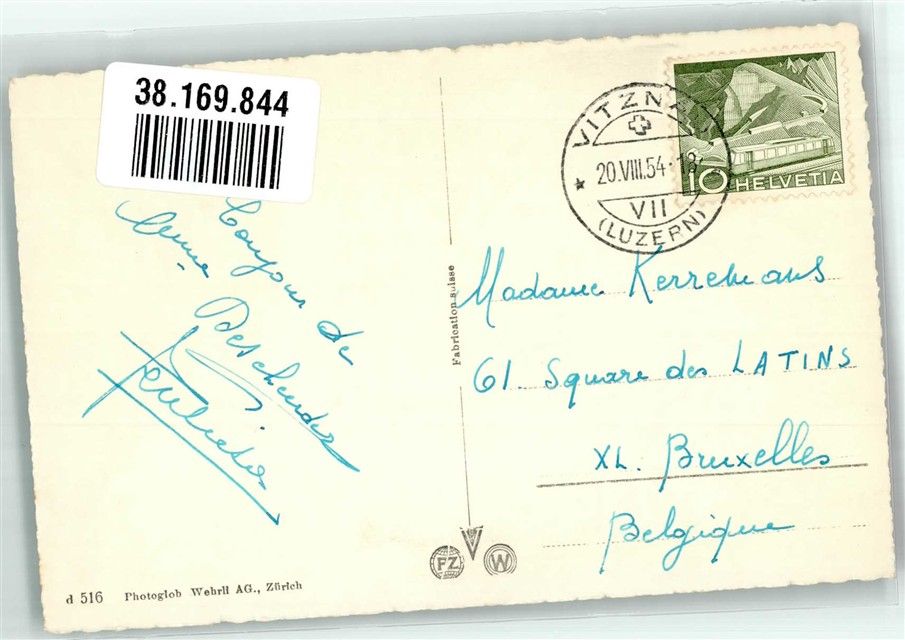 38.169.844
VITZNAU
20.VIII.54-18
VII
(LUZERN)
10 HELVETIA
Bonjour de
Madame Kerremans
61. Square des LATINS
XL. Bruxelles
Belgique
Fabrication suisse
FZ
W
d 516 Photoglob Wehrli AG., Zürich